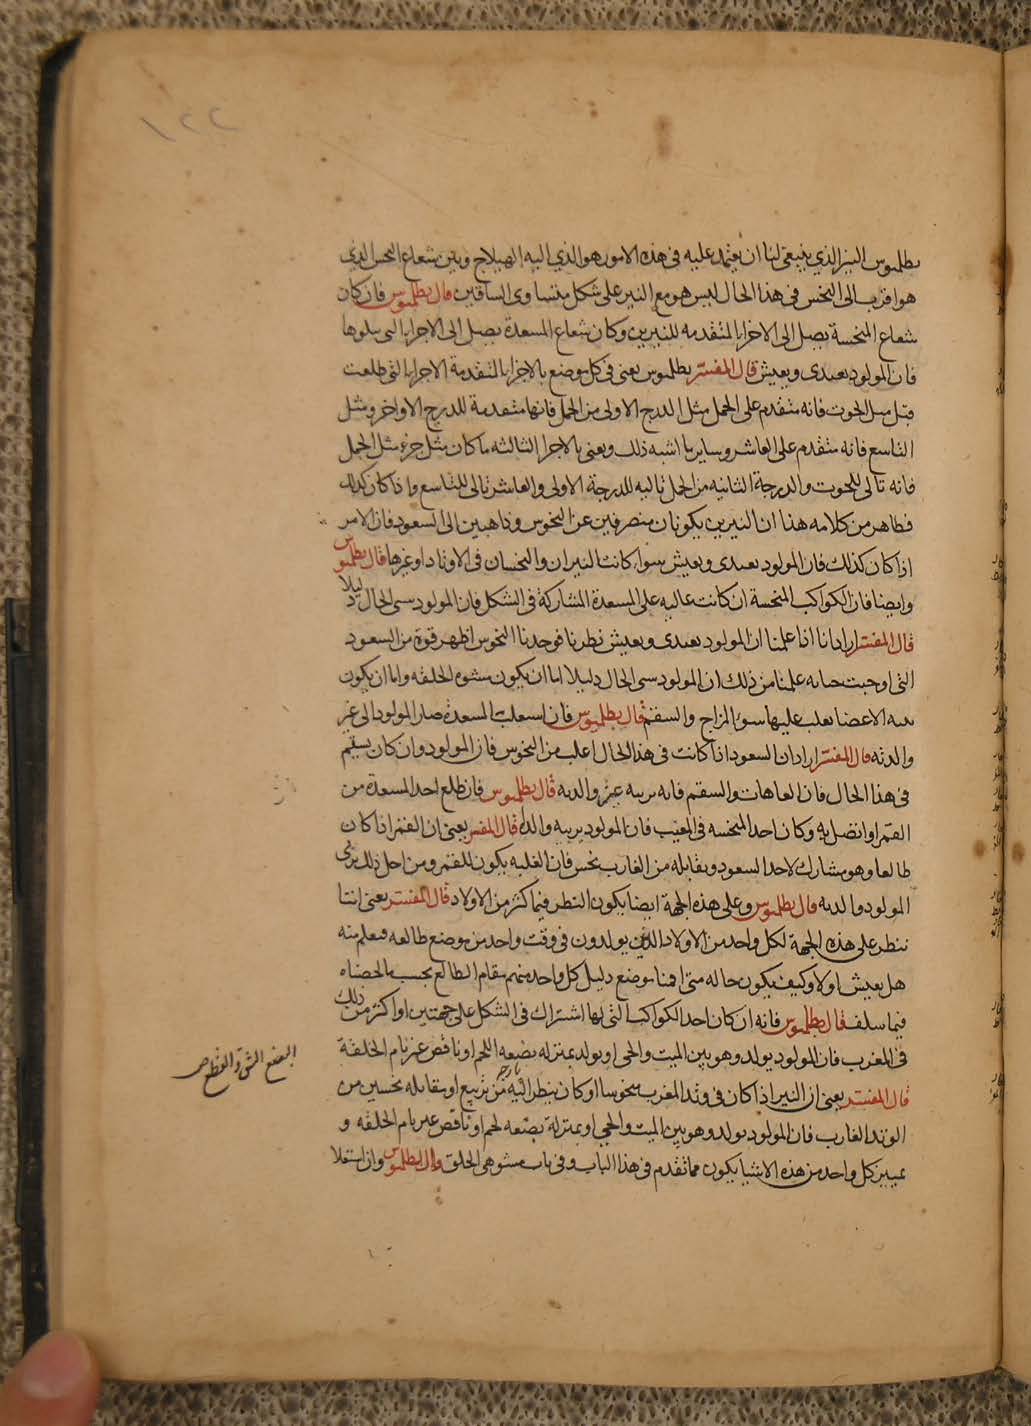 ١٢٢
بطلميوس النير الذي ينبغي لنا ان يعتمد عليه في هذه الامور هو الذي اليه الهيلاج وبين شعاع النحس الذي
هو اقرب الى النحس في هذا الحال ليس هو مع النير على شكل متساوى الساقين قال بطلميوس فان كان
شعاع المنحسة يصل الى الاجزا المتقدمه للنيرين وكان شعاع المسعدة يصل الى الاجزا التى يتلوها
فان المولود يعدى ويعيش قال المفسر بطلميوس يعنى في كل موضع بالاجزا المتقدمة الاجزا التى طلعت
قبل مثل الحوت فانه متقدم على الحمل مثل الدرج الاولى من الحمل فانها متقدمة للدرج الاواخر ومثل
التاسع فانه متقدم على العاشر وساير ما اشبه ذلك ويعنى بالاجزا الثالثه ما كان مثل جزء مثل الحمل
فانه تالى للحوت والدرجة الثانيه من الحمل تاليه للدرجة الاولى والعاشر تالى للتاسع واذا كان كذلك
فظاهر من كلامه هذا ان النيرين يكونان منصرفين عن النحوس وذاهبين الى السعود فاذ الامر
اذا كان كذلك فان المولود يعدى ويعيش سواء كانت النيران والنحسان في الاوتاد او غيرها قال بطلميوس
وايضا فان الكواكب المنحسة ان كانت عاليه على المسعدة المشاركة فى الشكل فان المولود سى الحال ذليلا
قال المفسر اراد انا اذا علمنا ان المولود يعدى ويعيش نظرنا فوجدنا النحوس اظهر قوة من السعود
التى اوجبت حياته علمنا من ذلك ان المولود سى الحال ذليلا اما ان يكون مشوه الخلقه واما ان يكون
الاعضا يغلب عليها سوء المزاج والسقم قال بطلميوس فان استعلت المسعدة صار المولود الى غير
والديه قال المفسر اراد ان السعود اذا كانت في هذا الحال اغلب من النحوس فان المولود وان كان يسقم
فى هذا الحال فان العاهات والسقم فانه يربيه غير والديه قال بطلميوس فان طلع احد المسعدة من
القمر او اتصل به وكان احد المنحسه في المغيب فان المولود يربيه والداه قال المفسر يعنى ان القمر اذا كان
طالعا وهو مشارك لاحد السعود ويقابله من الغارب نحس فان الغلبه يكون للقمر ومن اجل ذلك يربى
المولود والديه قال بطلميوس وعلى هذه الجهة ايضا يكون النظر فيما كثر من الاولاد قال المفسر يعنى اننا
ننظر على هذه الجهة لكل واحد من الاولاد الذين يولدون في وقت واحد من موضع طالعه فيعلم منه
هل يعيش او لا وكيف يكون حاله متى اقمنا موضع دليل كل واحد منهم مقام الطالع بحسب ما لخصناه
فيما سلف قال بطلميوس فانه ان كان احد الكواكب التى لها اشتراك في الشكل على جهتين او اكثر من ذلك
فى المغرب فان المولود يولد وهو بين الميت والحى او يولد بمنزله بضعه اللحم او ناقص غير تام الخلقة
قال المفسر يعنى ان النير اذا كان في وتد المغرب منحوسا او كان ينظر اليه من تربيع او مقابله نحسين من
الوتد الغارب فان المولود يولد وهو بين الميت والحى او بمنزلة بضعه لحم او ناقص غير تام الخلقه و
تمييز كل واحد من هذه الاشيا يكون مما تقدم في هذا الباب وفى باب مشوهى الخلق قال بطلميوس وان استعلا
البضع الشق والقطع ص